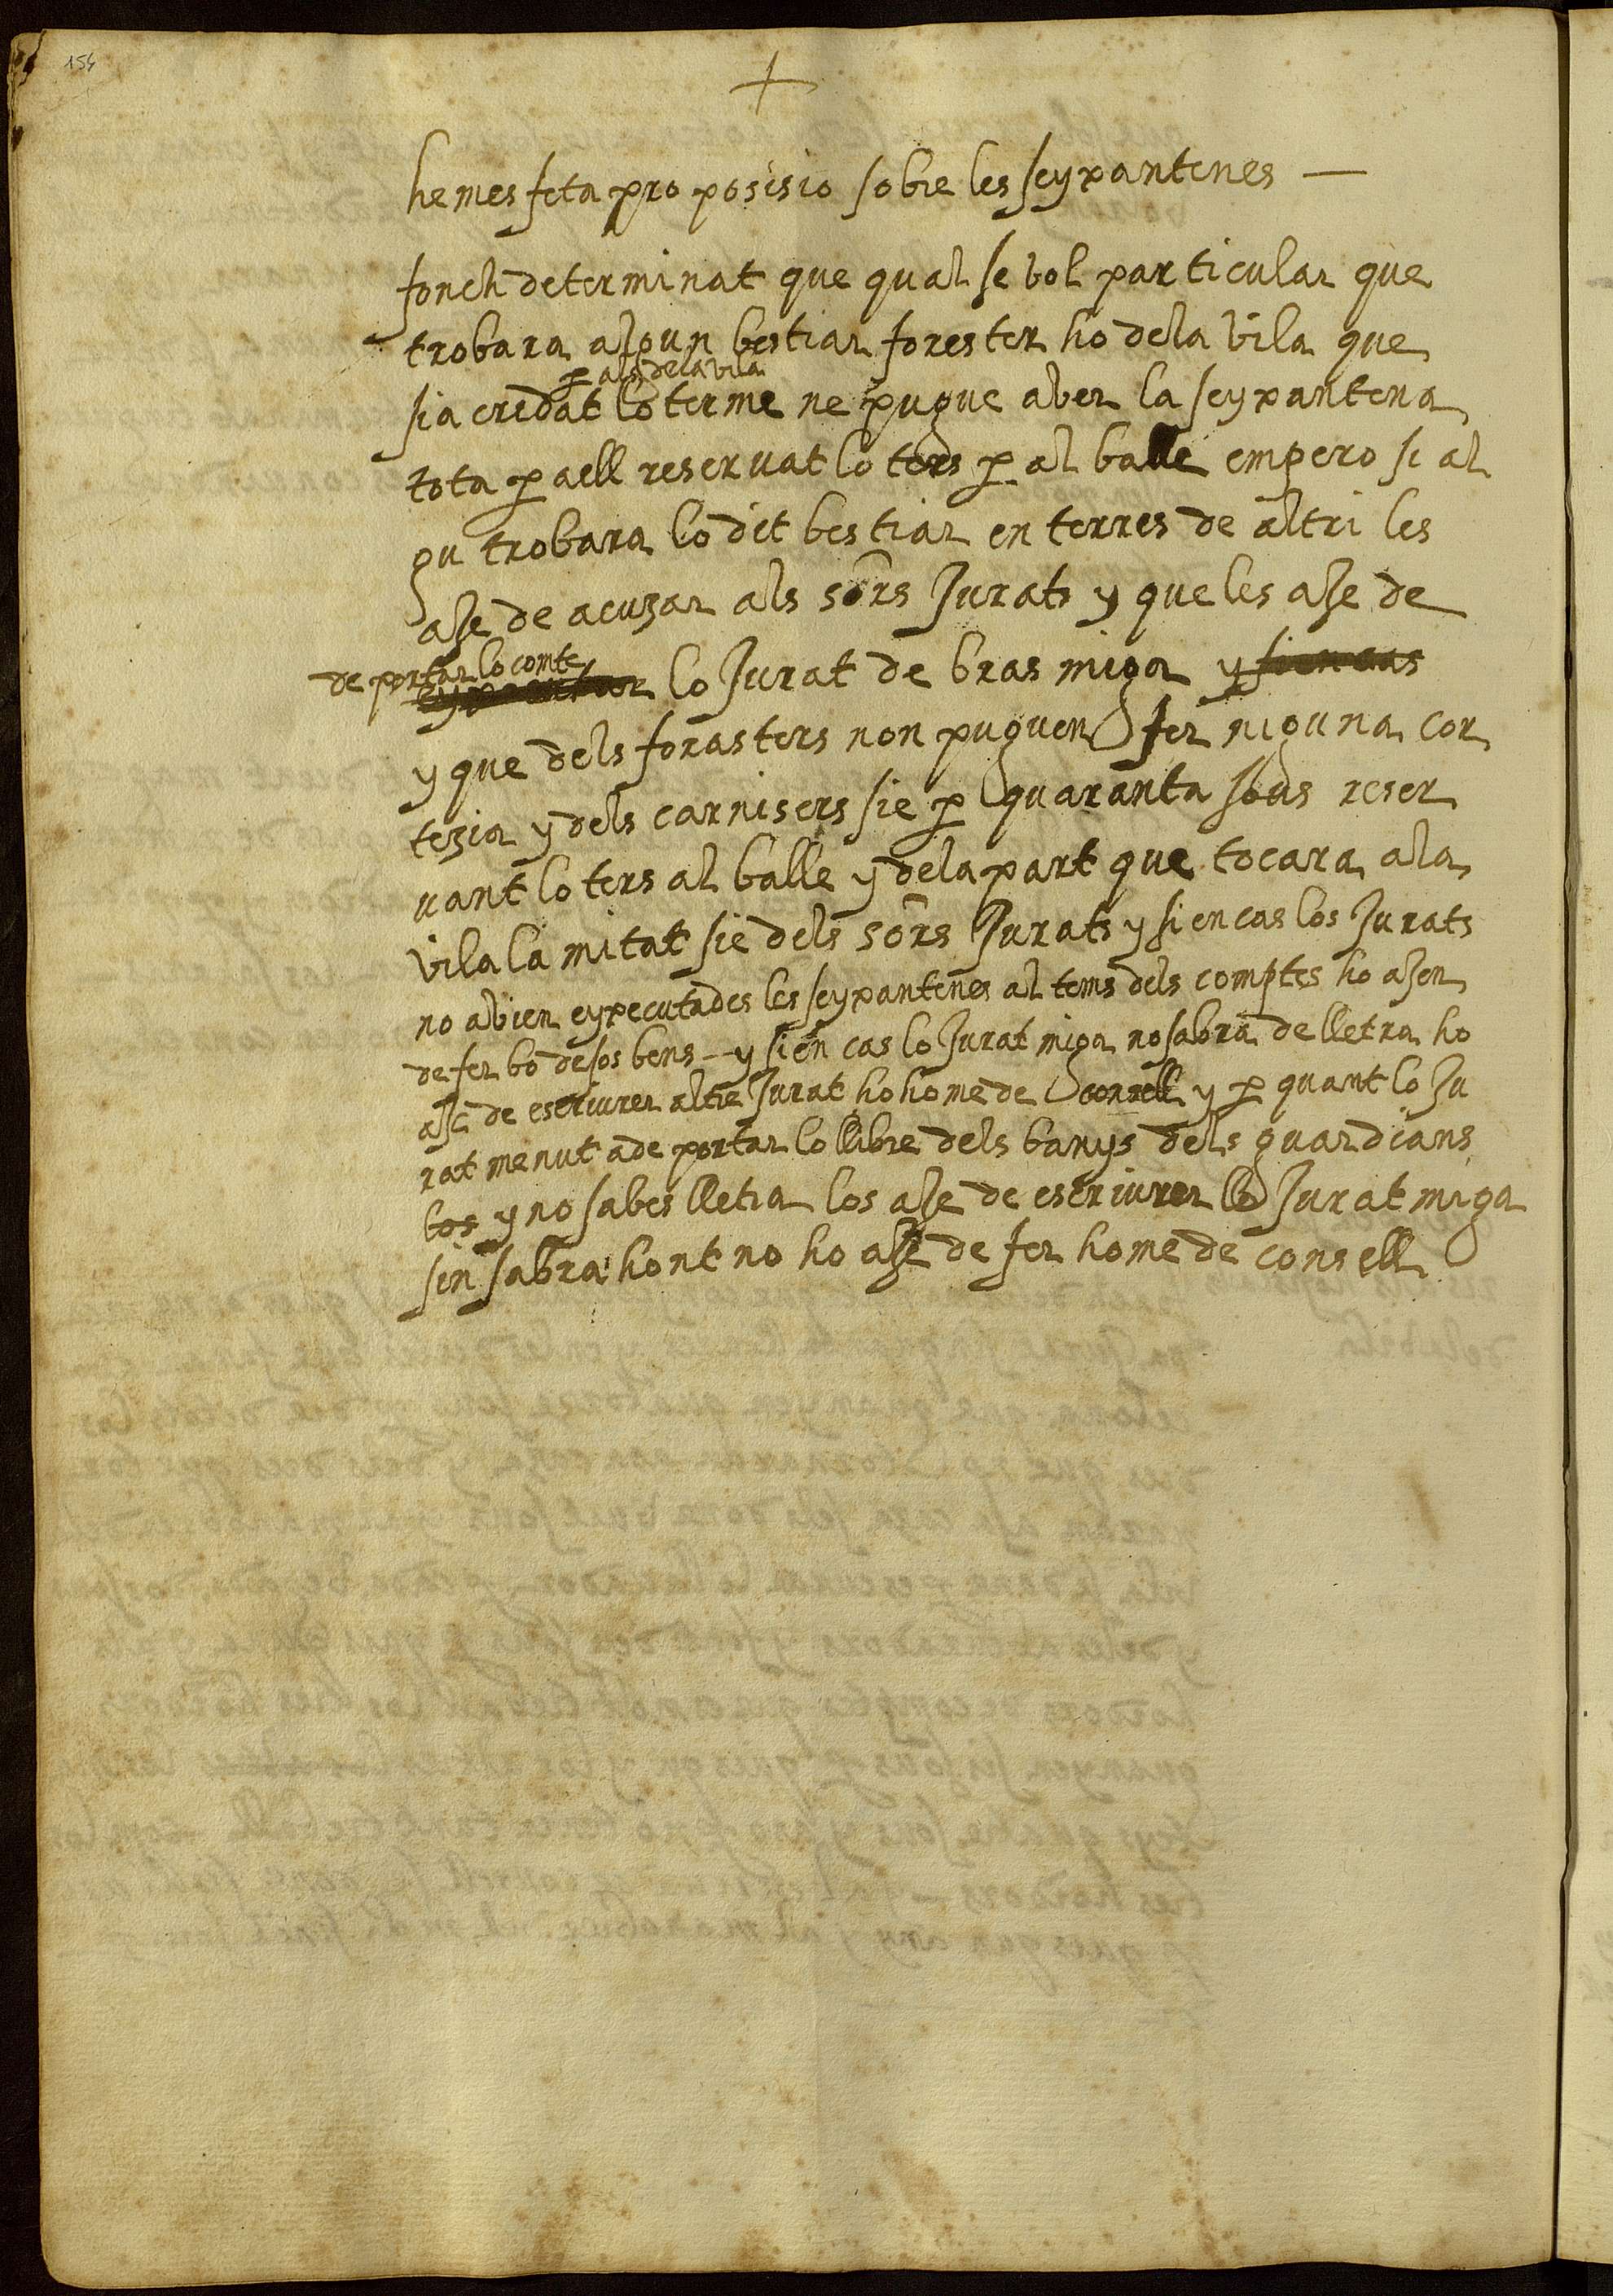 154
hemes feta proposisio sobre les seyxantenes —
fonch determinat que qual se vol particular que
trobara algun bestiar forester ho de la vila que
p als de la vila
sia cridat lo terme ne pugue aber la seyxantena
tota p a ell reservat lo ters p al balle empero si al
gu trobara lo dit bestiar en terres de altri les
ase de acuzar als sors Jurats y que les ase de
de portar lo comte
lo Jurat de bras miga y si en cas
y que dels forasters non puguen fer niguna cor
tezia y dels carnisers sie p quaranta sous reser
vant lo ters al balle y de la part que tocara a la
vila la mitat sie dels sors Jurats y si en cas los Jurats
no abien eyxecutades les seyxantenes al tems dels comptes ho asen
de fer bo de sos bens — y si en cas lo Jurat miga no sabra de lletra ho
ase de escriurer altre Jurat ho home de consell y p quant lo Ju
rat menut a de portar lo llibre dels banys dels guardians
los y no sabes lletra los ase de escriurer lo Jurat miga
sin sabra hont no ho ase de fer home de consell